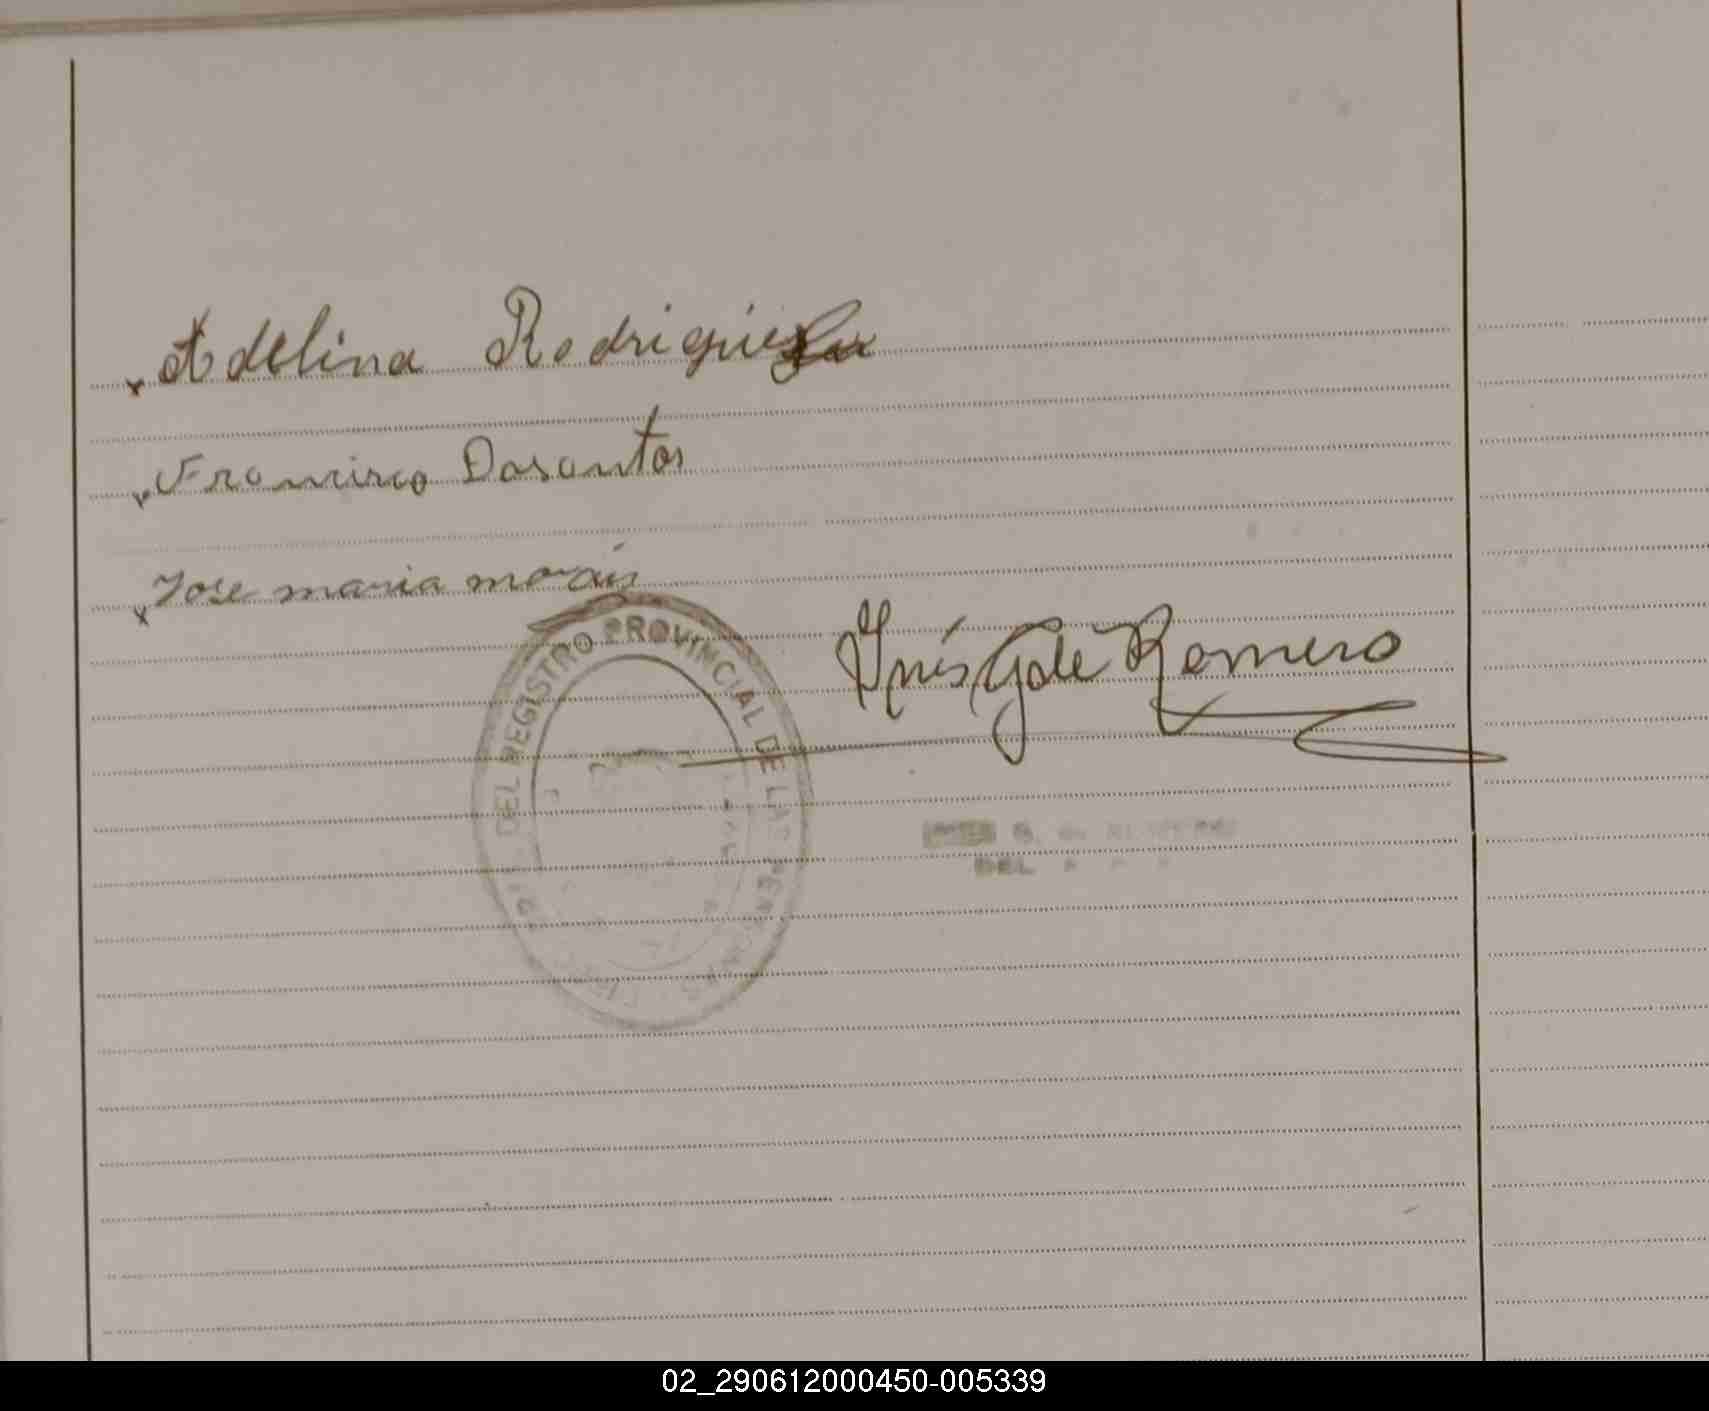 Adelina Rodriguez
Francirco Dosantos
Jose maria morais
Inés G de Romero
DEL REGISTRO PROVINCIAL DE LAS PERSONAS
DEL
02_290612000450-005339